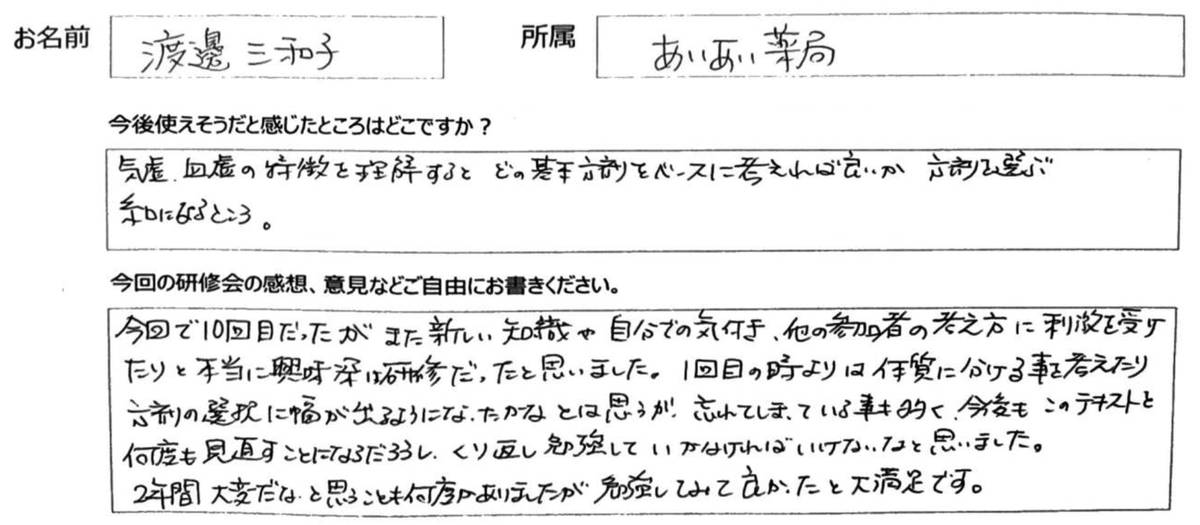 お名前 渡邊三和子 所属 あいあい薬局
今後使えそうだと感じたところはどこですか？
気虚、血虚の特徴を理解すると どの基本方剤をベースに考えれば良いか 方剤を選ぶ
糸口になるところ。
今回の研修会の感想、意見などご自由にお書きください。
今回で10回目だったが また新しい知識や自分での気付き、他の参加者の考え方に刺激を受け
たりと本当に興味深い研修だったと思いました。1回目の時よりは体質に分ける事を考えたり
方剤の選択に幅が出るようになったかなとは思うが、忘れてしまっている事も多く、今後もこのテキストを
何度も見直すことになるだろうし、くり返し勉強していかなければいけないなと思いました。
2年間大変だなと思うことも何度かありましたが勉強してみて良かったと大満足です。